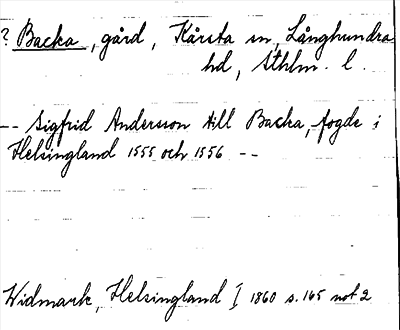 ? Backa, gård, Kårsta sn, Långhundra
hd, Sthlm. l.
-- Sigfrid Andersson till Backa, fogde i
Helsingland 1555 och 1556 --
Widmark, Helsingland I 1860 s. 165 not 2